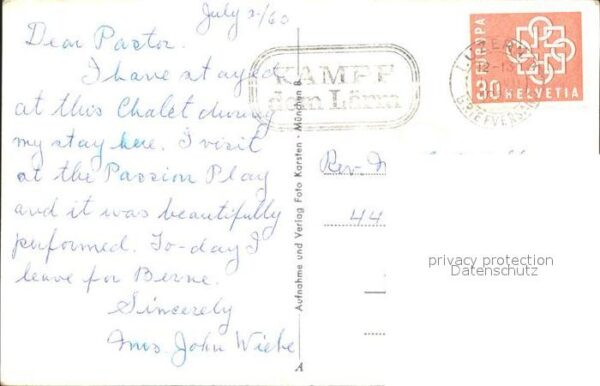 July 2/60
Dear Pastor.
I have stayed
at this Chalet during
my stay here. I visit
at the Passion Play
and it was beautifully
performed. To-day I
leave for Berne.
Sincerely
Mrs. John Wiebe
KAMPF
dem Lärm
LUZERN
12-13
BRIEFVERSAND
EUROPA
30 HELVETIA
Aufnahme und Verlag Foto Karsten - München 8
Rev.
44
A
privacy protection
Datenschutz